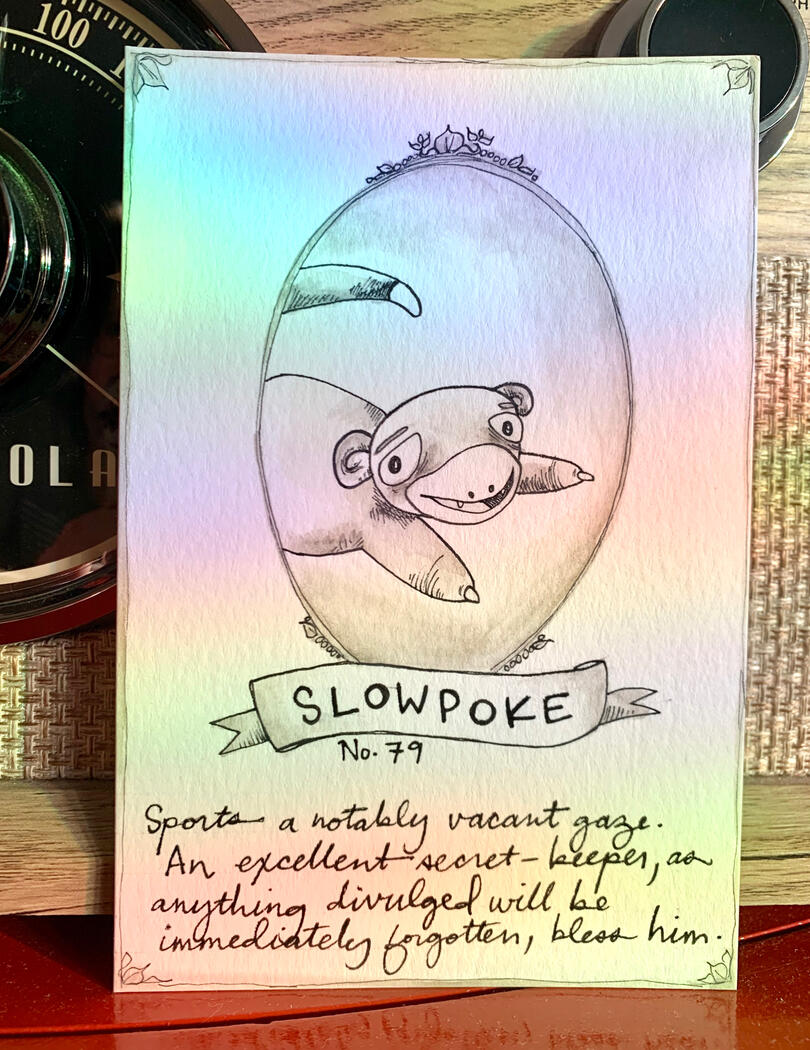 100
OLA
SLOWPOKE
No. 79
Sports a notably vacant gaze.
An excellent secret-keeper, as
anything divulged will be
immediately forgotten, bless him.